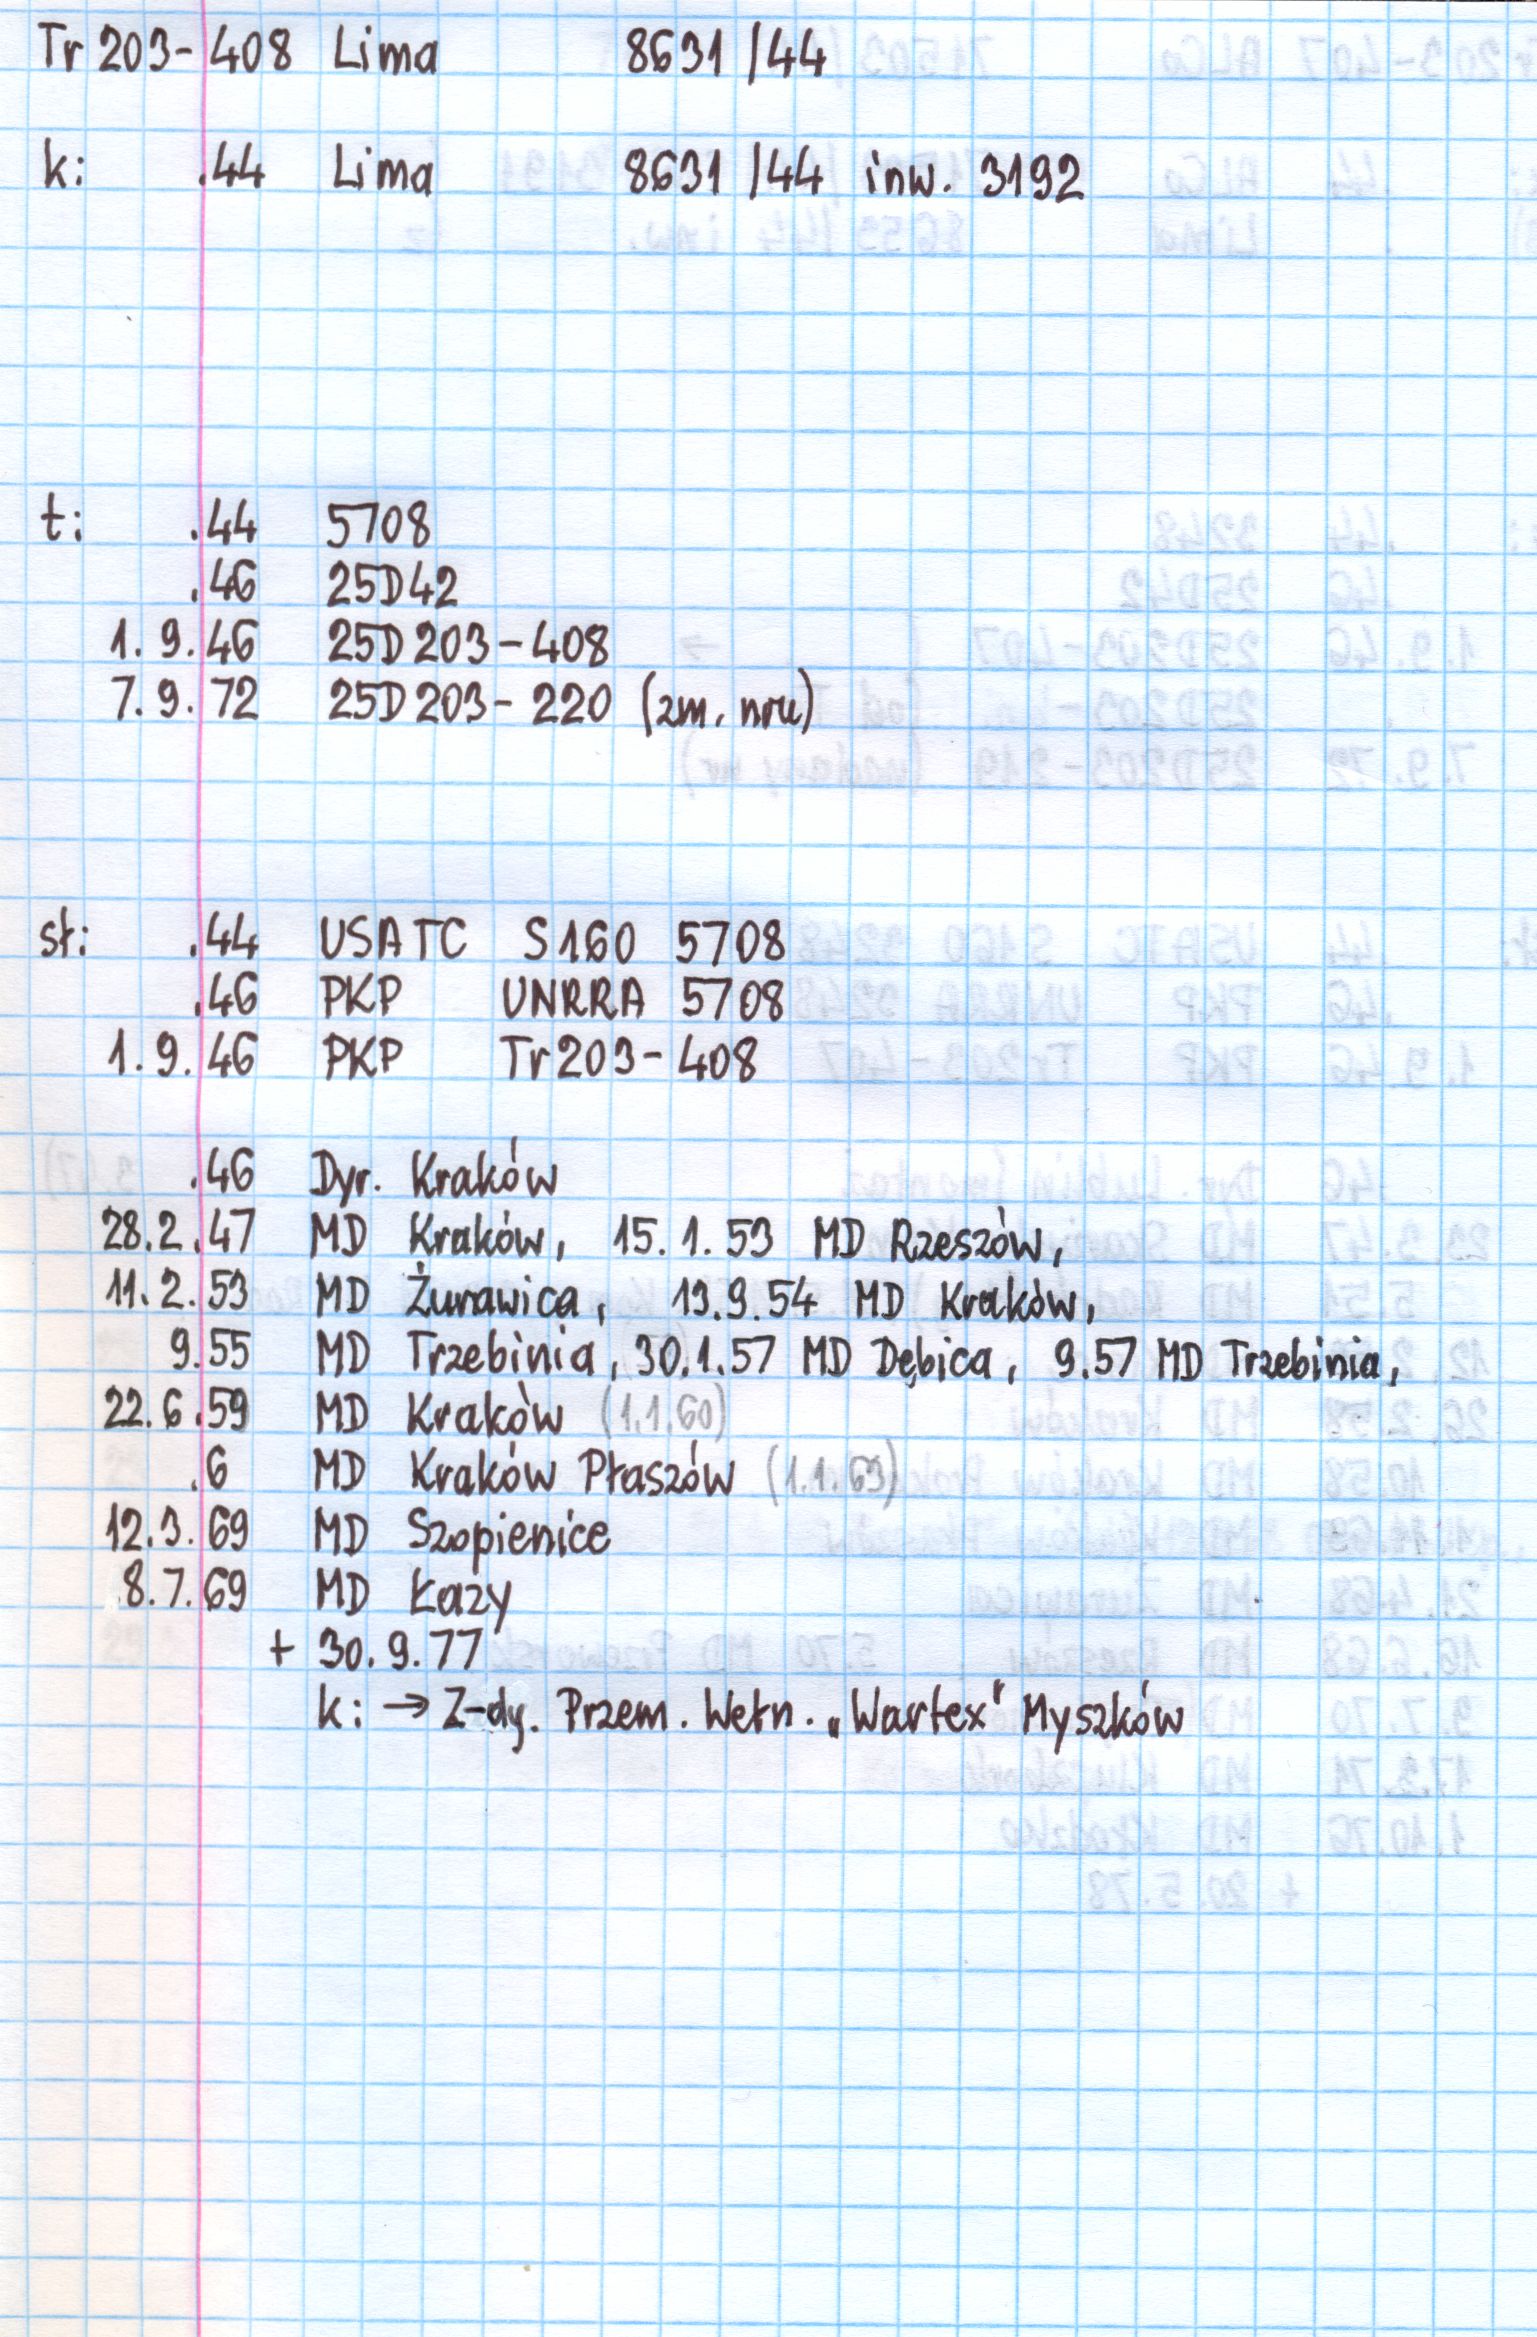 Tr 203-408 Lima 8631/44
k: .44 Lima 8631/44 inw. 3192
t: .44 5708
.46 25D42
1.9.46 25D203-408
7.9.72 25D203-220 (zm. nru)
sł: .44 USATC S160 5708
.46 PKP UNRRA 5708
1.9.46 PKP Tr203-408
.46 Dyr. Kraków
28.2.47 MD Kraków, 15.1.53 MD Rzeszów,
11.2.53 MD Żurawica, 19.9.54 MD Kraków,
9.55 MD Trzebinia, 30.1.57 MD Dębica, 9.57 MD Trzebinia,
22.6.59 MD Kraków (1.1.60)
.6 MD Kraków Płaszów (1.1.63)
12.3.69 MD Szopienice
8.7.69 MD Łazy
+ 30.9.77
k: → Z-dy. Przem. Wełn. „Wartex" Myszków